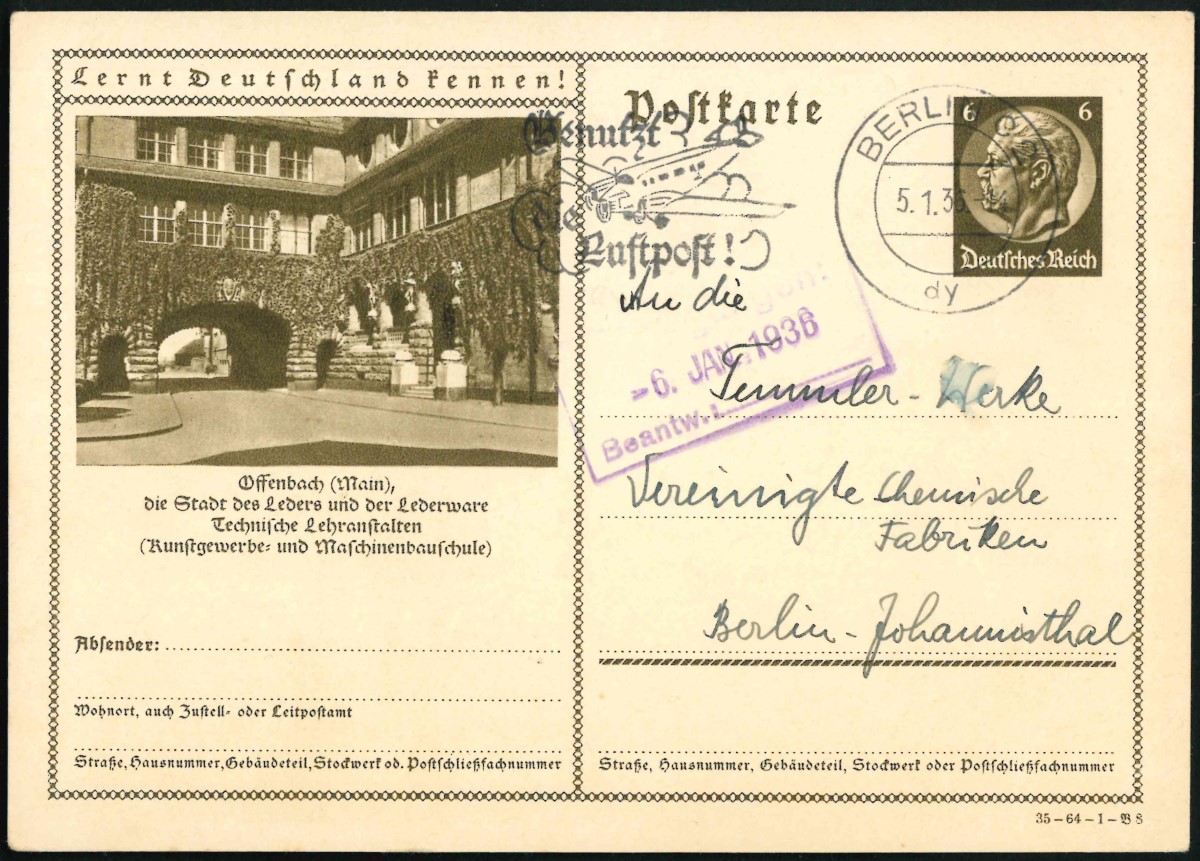 Lernt Deutschland kennen!
Offenbach (Main),
die Stadt des Leders und der Lederware
Technische Lehranstalten
(Kunstgewerbe- und Maschinenbauschule)
Absender:
Wohnort, auch Zustell- oder Leitpostamt
Straße, Hausnummer, Gebäudeteil, Stockwerk od. Postschließfachnummer
Postkarte
Benutzt
die
Luftpost!
BERLIN
5.1.36
dy
6 6
Deutsches Reich
-6. JAN. 1936
Beantw.:
An die
Temmler-Werke
Vereinigte Chemische
Fabriken
Berlin-Johannisthal
Straße, Hausnummer, Gebäudeteil, Stockwerk oder Postschließfachnummer
35-64-1-B 8